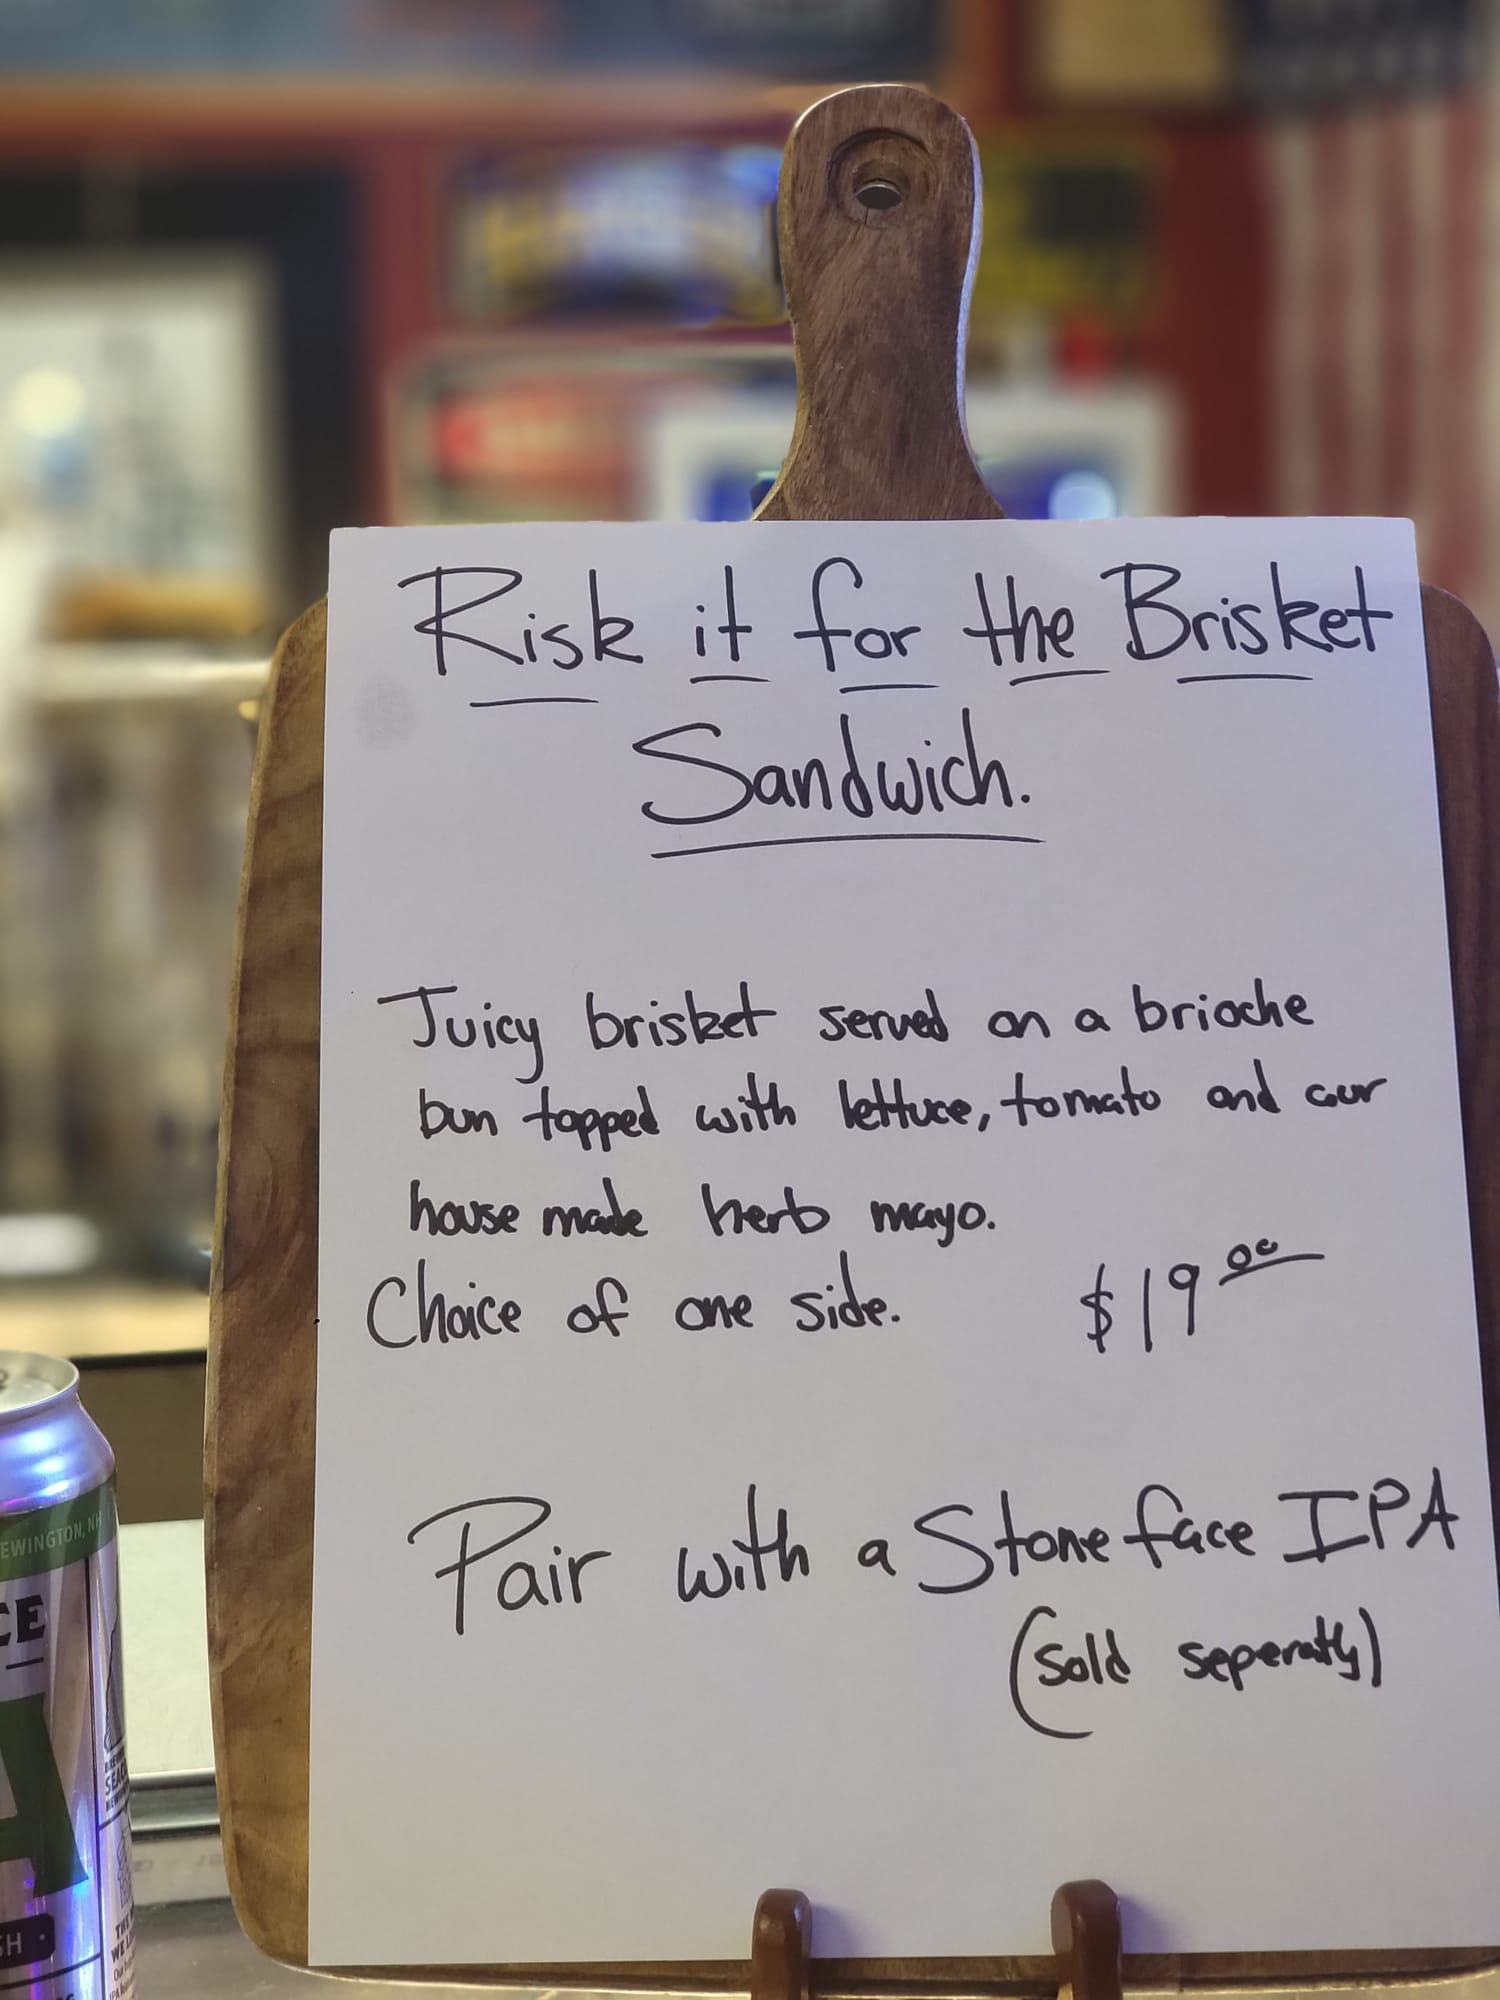 Risk it for the Brisket
Sandwich.
Juicy brisket served on a brioche
bun topped with lettuce, tomato and our
house made herb mayo.
Choice of one side. $19.00
Pair with a Stoneface IPA
(sold seperatly)
EWINGTON, NH
CE
A
SH